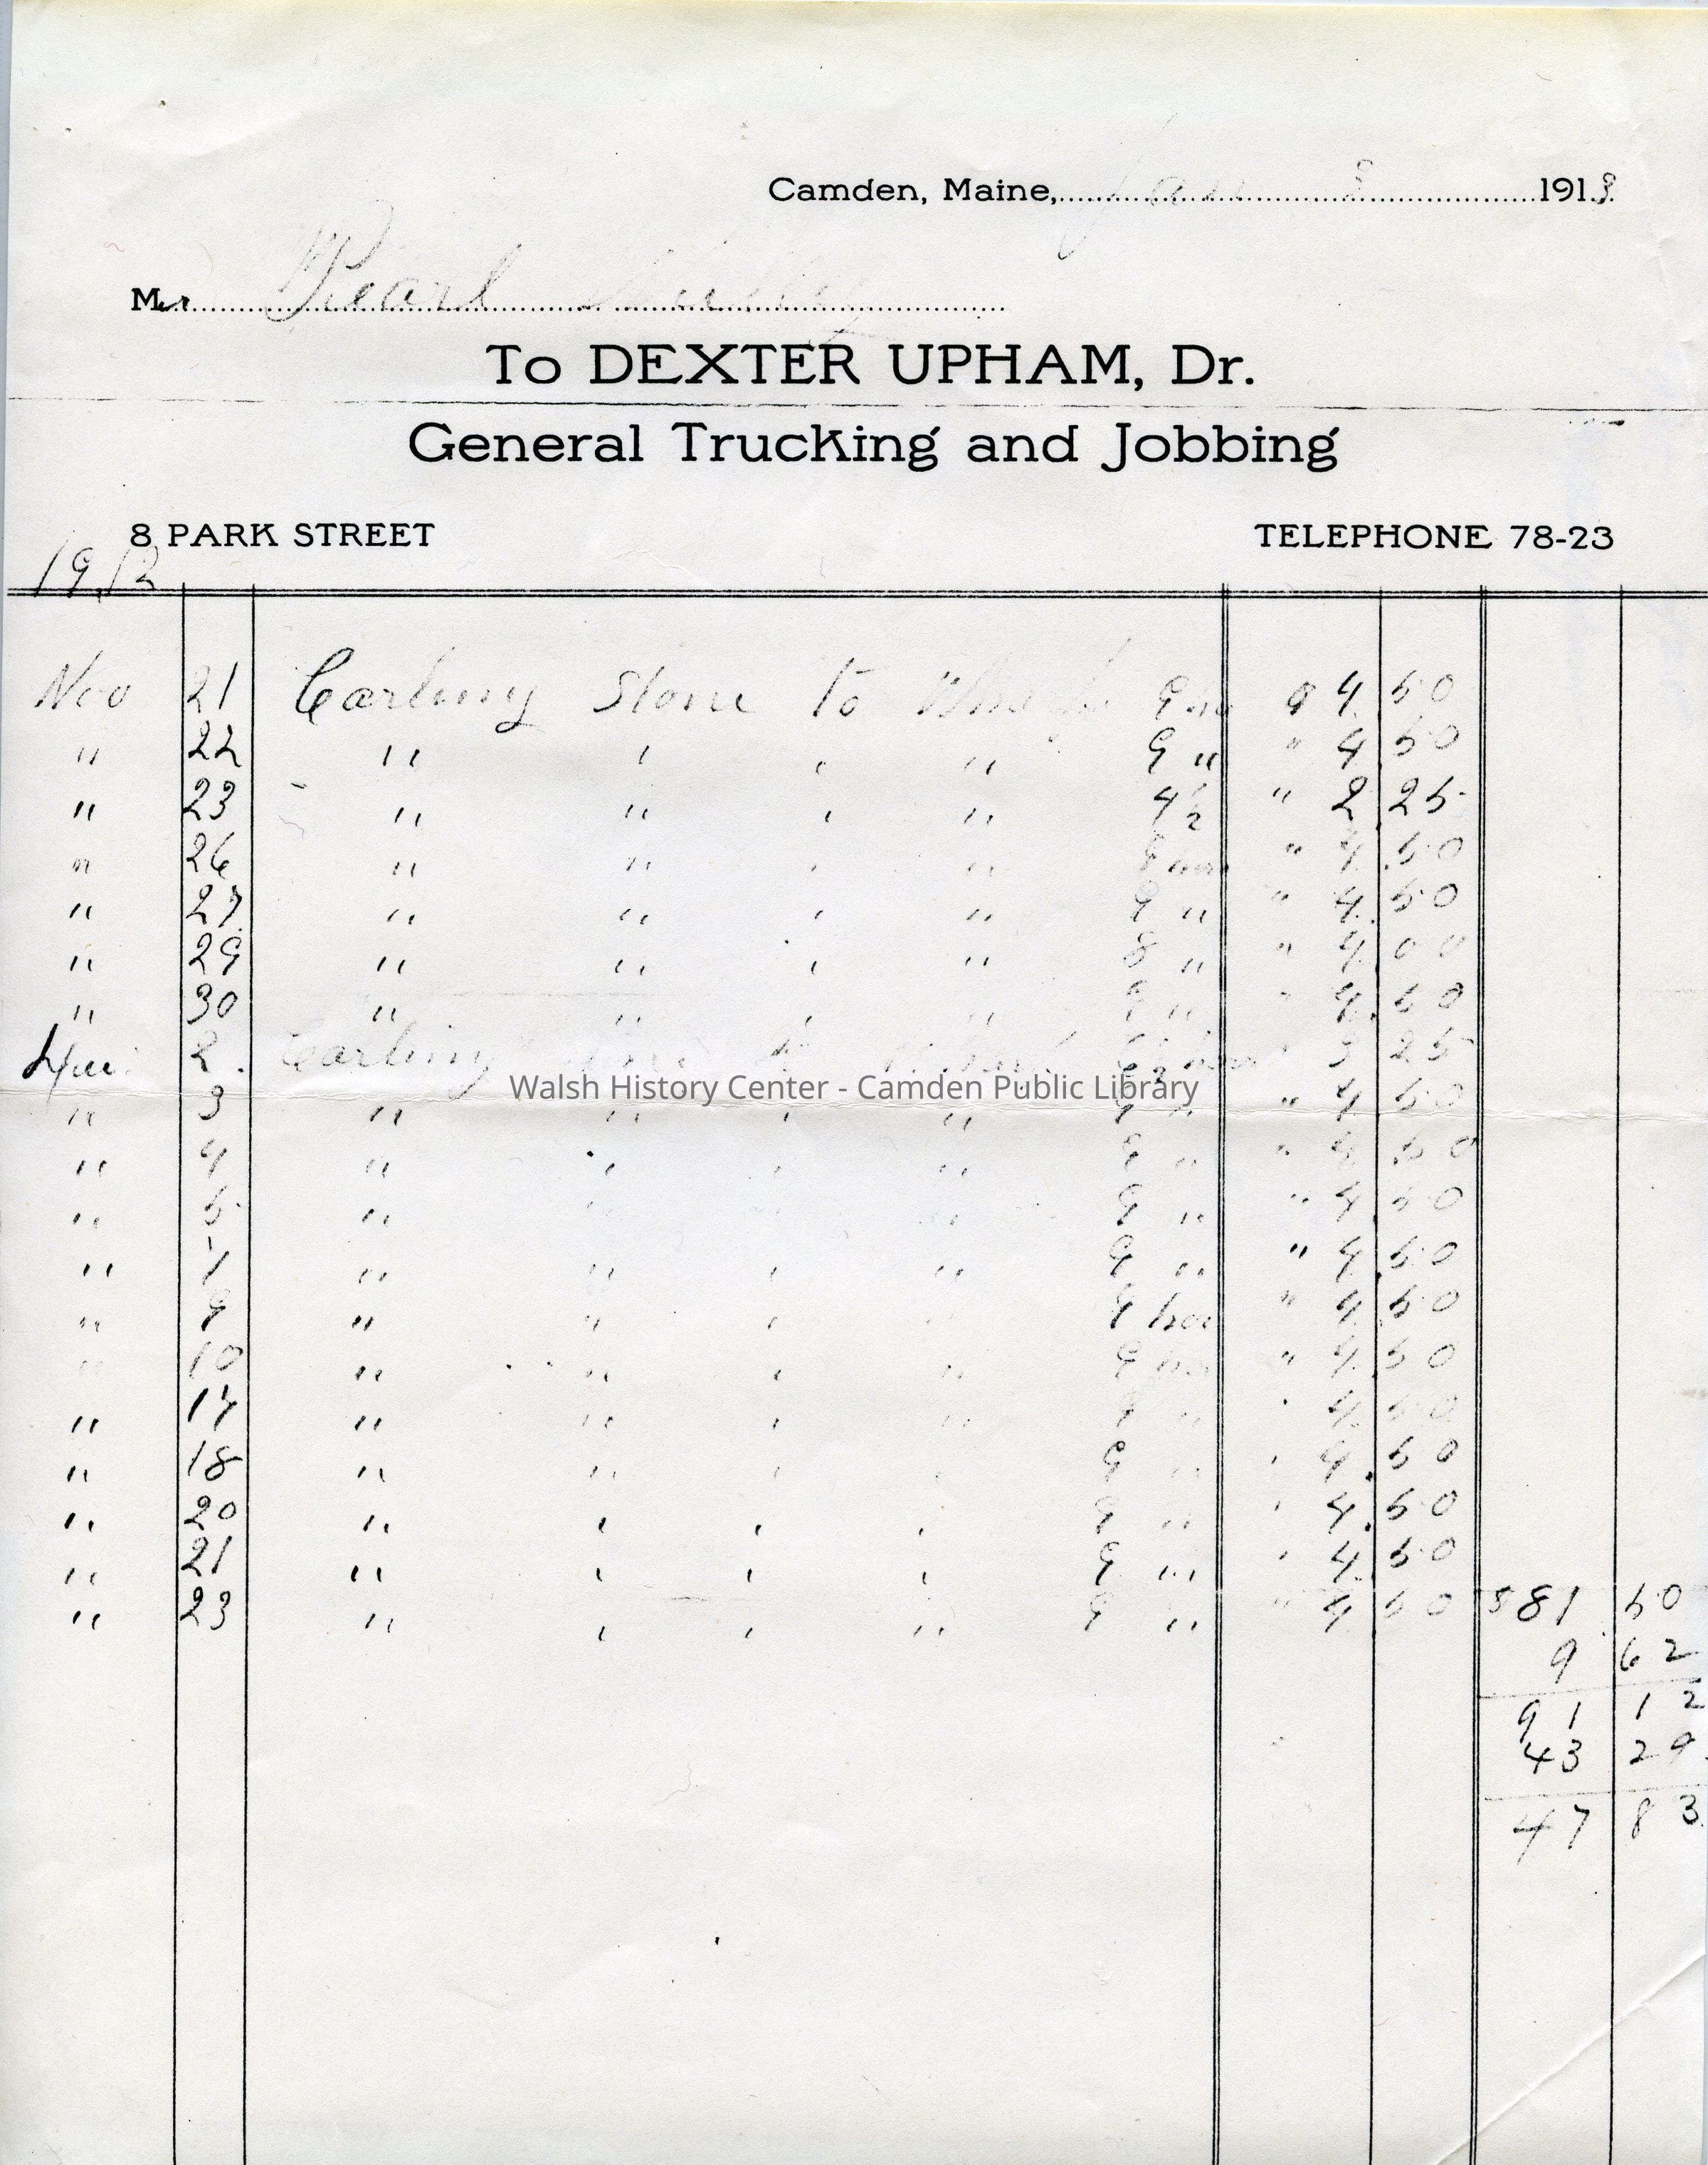 Camden, Maine, Jan 8 1913
Mr Pearl
To DEXTER UPHAM, Dr.
General Trucking and Jobbing
8 PARK STREET TELEPHONE 78-23
1912
Nov 21 Carting Stone to 9 4 50
" 22 " " " " 9 " " 4 50
" 23 " " " " 4½ " 2 25
" 26 " " " " 9 " 4 50
" 27 " " " " 9 " " 4 50
" 29 " " " " 8 " " 4 00
" 30 " " " " 9 " " 4 50
2 Carting 6½ 3 25
Walsh History Center - Camden Public Library
" 3 " " " " 9 " " 4 50
" 4 " " " " 9 " " 4 50
" 5 " " " " 9 " " 4 50
" 7 " " " " 9 " " 4 50
" 9 " " " " 9 " 4 50
" 10 " " " " 9 " 4 50
" 17 " " " " 9 " " 4 50
" 18 " " " " 9 " " 4 50
" 20 " " " " 9 " " 4 50
" 21 " " " " 9 " " 4 50
" 23 " " " " 9 " " 4 50 $81 50
9 62
91 12
43 29
47 83